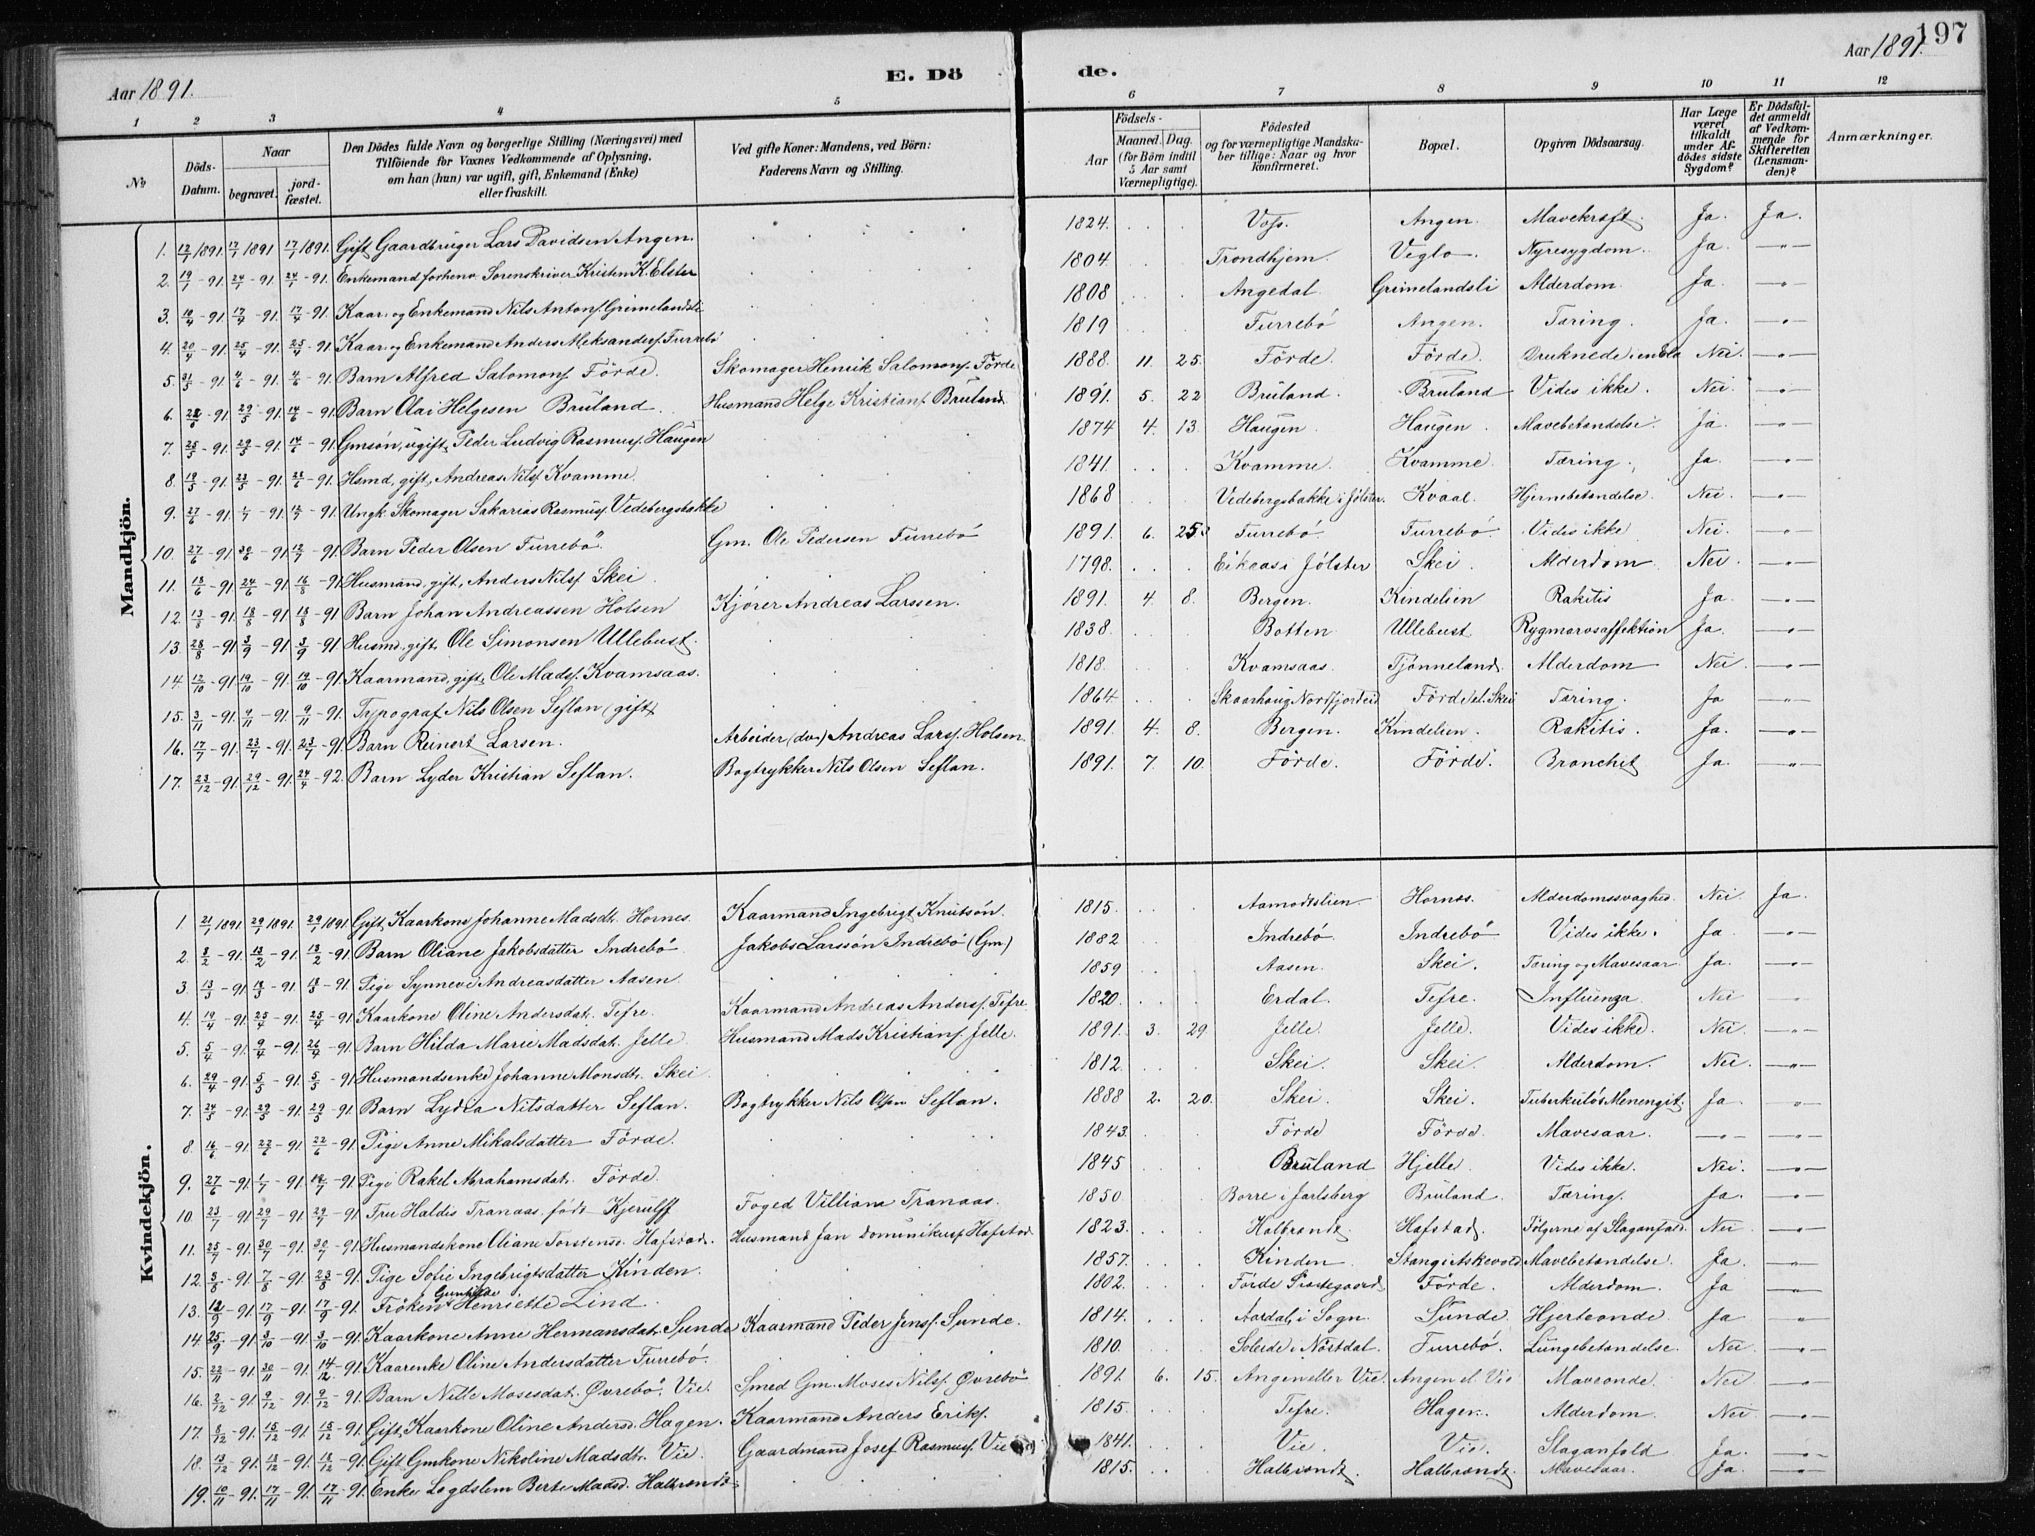 197
Aar 1891.
E. Dö
de.
Aar 1891.
1 2 3 4 5 6 7 8 9 10 11 12
No
Döds-Datum.
Naar
begravet.
jord-fæstet.
Den Dödes fulde Navn og borgerlige Stilling (Næringsvei) med
Tilföiende for Voxnes Vedkommende af Oplysning,
om han (hun) var ugift, gift, Enkemand (Enke)
eller fraskilt.
Ved gifte Koner: Mandens, ved Börn:
Faderens Navn og Stilling.
Födsels-
Aar
Maaned. Dag.
(for Börn indtil 5 Aar samt Værnepligtige).
Födested
og for værnepligtige Mandskaber tillige: Naar og hvor konfirmeret.
Bopæl.
Opgiven Dödsaarsag.
Har Læge været tilkaldt under Afdödes sidste Sygdom?
Er Dödsfaldet anmeldt af Vedkommende for Skifteretten (Lensmanden)?
Anmærkninger.
Mandkjön.
1. 12/7 1891. 17/7 1891 17/7 1891. Gift Gaardbruger Lars Davidsen Angen. 1824. Voss. Angen. Mavekræft. Ja. Ja.
2. 19/7 -91. 24/7 -91. 24/7 -91. Enkemand forhenv. Sorenskriver Kristen K. Elster 1804. Trondhjem. Vegto. Nyresygdom. Ja. -"-
3. 10/4 -91. 17/4 -91. 17/4 -91. Kaar- og Enkemand Nils Antons. Grimelandsli 1808 Angedal Grimelandsli Alderdom. Ja. -"-
4. 20/4 -91. 25/4 -91. 25/4 -91. Kaar- og Enkemand Anders Aleksanders. Furrebö 1819 Furrebö Angen. Tæring. Ja. -"-
5. 31/5 -91. 4/6 -91. 4/6 -91. Barn Alfred Salomons. Förde. Skomager Henrik Salomons. Förde 1888. 11. 25. Förde. Förde. Druknede i en Elv Nei. -"-
6. 28/6 -91. 29/5 -91. 14/6 -91. Barn Olai Helgesen Bruland. Husmand Helge Kristians. Bruland. 1891. 5. 22 Bruland. Bruland Vides ikke. Nei -"-
7. 25/5 -91. 29/5 -91. 14/6 -91. Gmsøn, ugift, Peder Ludvig Rasmuss. Haugen 1874 4. 13. Haugen Haugen. Mavebetændelse. Ja. -"-
8. 18/5 -91. 23/5 -91. 28/6 -91. Hsmd, gift, Andreas Nilss. Kvamme. 1841. Kvamme. Kvamme. Tæring. Ja -"-
9. 27/6 -91. 1/7 -91. 12/7 -91. Ungk. Skomager Sakarias Rasmuss. Vedebergsbakke 1868 Vedebergsbakke i Jølster. Kvaal. Hjernebetændelse. Nei. -"-
10. 27/6 -91. 30/6 -91. 12/7 -91. Barn Peder Olsen Furrebö. Gm. Ole Pedersen Furrebö 1891. 6. 25. Furrebö. Furrebö. Vides ikke Nei. -"-
11. 18/6 -91. 24/6 -91. 16/8 -91. Husmand, gift, Anders Nilss. Skei. 1798. Eikaas i Jølster Skei. Alderdom. Nei. -"-
12. 13/8 -91. 18/8 -91. 18/8 -91 Barn Johan Andreassen Holsen Kjører Andreas Larssen. 1891. 4. 8. Bergen. Kindelien Rakitis Ja. -"-
13. 28/8 -91. 3/9 -91. 3/9 -91. Husmd, gift, Ole Simonsen Ullebust. 1838. Botten Ullebust Rygmarvsaffektion Ja. -"-
14. 12/10 -91. 19/10 -91. 19/10 -91. Kaarmand, gift, Ole Madss. Kvamsaas. 1818. Kvamsaas. Tjønneland. Alderdom Nei. -"-
15. 3/11 -91. 9/11 -91. 9/11 -91. Typograf Nils Olsen Seflan (gift) 1864. Skaarhaug Nordfjordeid Förde el. Skei Tæring. Ja -"-
16. 17/7 -91. 23/7 -91. 23/7 -91. Barn Reinert Larsen. Arbeider (dv.) Andreas Larss. Holsen. 1891 4. 8. Bergen. Kindelien. Rakitis. Ja. -"-
17. 23/12 -91. 29/12 -91. 24/4 -92. Barn Lyder Kristian Seflan. Bogtrykker Nils Olsen Seflan. 1891. 7. 10. Förde. Förde. Bronchit Ja. -"-
Kvindekjön.
1 21/1 1891. 29/1 1891. 29/1 1891. Gift, Kaarkone Johanne Madsdt. Hornes. Kaarmand Ingebrigt Knutsön. 1815. Aamodtslien Hornes. Alderdomssvaghed. Nei Ja.
2. 8/2 -91. 13/2 -91. 13/2 -91. Barn Oliane Jakobsdatter Indrebö Jakobs Larssön Indrebö (Gm) 1882 Indrebö. Indrebö Vides ikke. Ja. -"-
3. 13/3 -91. 18/3 -91. 18/3 -91. Pige Synneve Andreasdatter Aasen. 1859 Aasen. Skei. Tæring og Mavesaar. Ja. -"-
4. 19/4 -91. 25/4 -91. 25/4 -91. Kaarkone Oline Andersdat. Tefre. Kaarmand Andreas Anderss. Tefre. 1820. Erdal. Tefre. Influenza Nei -"-
5. 5/4 -91. 9/4 -91. 26/4 -91. Barn Hilda Marie Madsdat. Jelle Husmand Mads Kristians. Jelle. 1891. 3. 29 Jelle. Jelle. Vides ikke. Nei. -"-
6. 29/4 -91. 5/5 -91. 5/5 -91. Husmandsenke Johanne Monsdt. Skei. 1812. Skei. Skei. Alderdom. Nei. -"-
7. 24/5 -91. 29/5 -91. 29/5 -91. Barn Lydia Nilsdatter Seflan. Bogtrykker Nils Olsen Seflan. 1888 2. 20. Skei. Skei. Tuberkuløs Menengit. Ja -"-
8. 16/6 -91. 22/6 -91. 22/6 -91. Pige Anne Mikalsdatter Förde. 1843. Förde Förde. Mavesaar. -"- -"-
9. 27/6 -91. 1/7 -91. 12/7 -91. Pige Rakel Abrahamsdat. Förde. 1845 Bruland Hjelle. Vides ikke. Nei. -"-
10. 23/7 -91. 29/7 -91. 29/7 -91. Fru Haldis Tranaas, född Kjerulff Foged Villiam Tranaas. 1850. Borre i Jarlsberg Bruland. Tæring. Ja. -"-
11. 25/7 -91. 30/7 -91. 30/7 -91. Husmandskone Oliane Torstensd. Hafstad. Husmand Jan Dominikuss Hafstad 1823. Halbrendt. Hafstad. Følgerne af Slaganfald. Nei -"-
12. 3/8 -91. 7/8 -91. 23/8 -91. Pige Sofie Ingebrigtsdatter Kinden. 1857. Kinden Stang i Askevold Mavebetændelse. Ja. -"-
13. 12/9 -91. 17/9 -91. 17/9 -91. Frøken Gunhilde Henriette Lind. 1802. Förde Præstegaard. Förde. Alderdom. Ja -"-
14. 25/9 -91. 3/10 -91. 3/10 -91. Kaarkone Anne Hermansdat. Sunde Kaarmand Peder Jenss. Sunde. 1814. Aardal, i Sogn. Sunde. Hjerteonde. Ja -"-
15. 22/11 -91. 30/11 -91. 14/12 -91. Kaarenke Oline Andersdatter Furrebö. 1810. Soleide i Nörtdal. Furrebö. Lungebetændelse. Nei. -"-
16. 2/12 -91. 9/12 -91. 9/12 -91. Barn Nille Mosesdat. Øvrebö, Vie. Smed Gm. Moses Nilss. Øvrebö 1891. 6. 15. Angen eller Vie. Angen el Vie Maveonde. Nei -"-
17. 8/12 -91. 15/12 -91. 15/12 -91. Gift, Kaarkone Oline Andersd. Hagen. Kaarmand Anders Eriks. 1815. Tefre. Hagen. Alderdom. Nei -"-
18. 13/12 -91. 18/12 -91. 18/12 -91. Gift Gmkone Nikoline Madsdt. Vie. Gaardmand Josef Rasmuss. Vie 1841. Vie. Vie. Slaganfald Ja. -"-
19. 10/11 -91. 17/11 -91. 17/11 -91. Enke Logdslem Berte Madsd. Halbrendt. 1815. Halbrendt. Halbrendt. Mavesaar. Ja. -"-